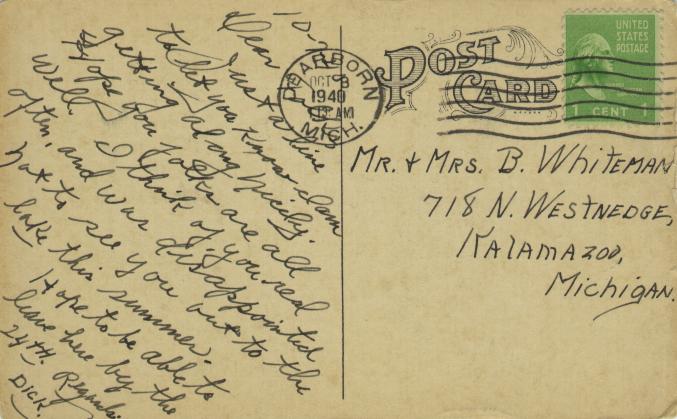 Dear
Just a line
to let you know I am
getting along nicely.
Hope you folks are all
well. I think of you real
often, and was disappointed
not to see you out to the
lake this summer.
Hope to be able to
leave here by the
24TH. Regards.
DICK.
DEARBORN
OCT 8
1940
AM
MICH.
POST
CARD
UNITED
STATES
POSTAGE
1 CENT 1
MR. + MRS. B. WHITEMAN
718 N. WESTNEDGE,
KALAMAZOO,
MICHIGAN.